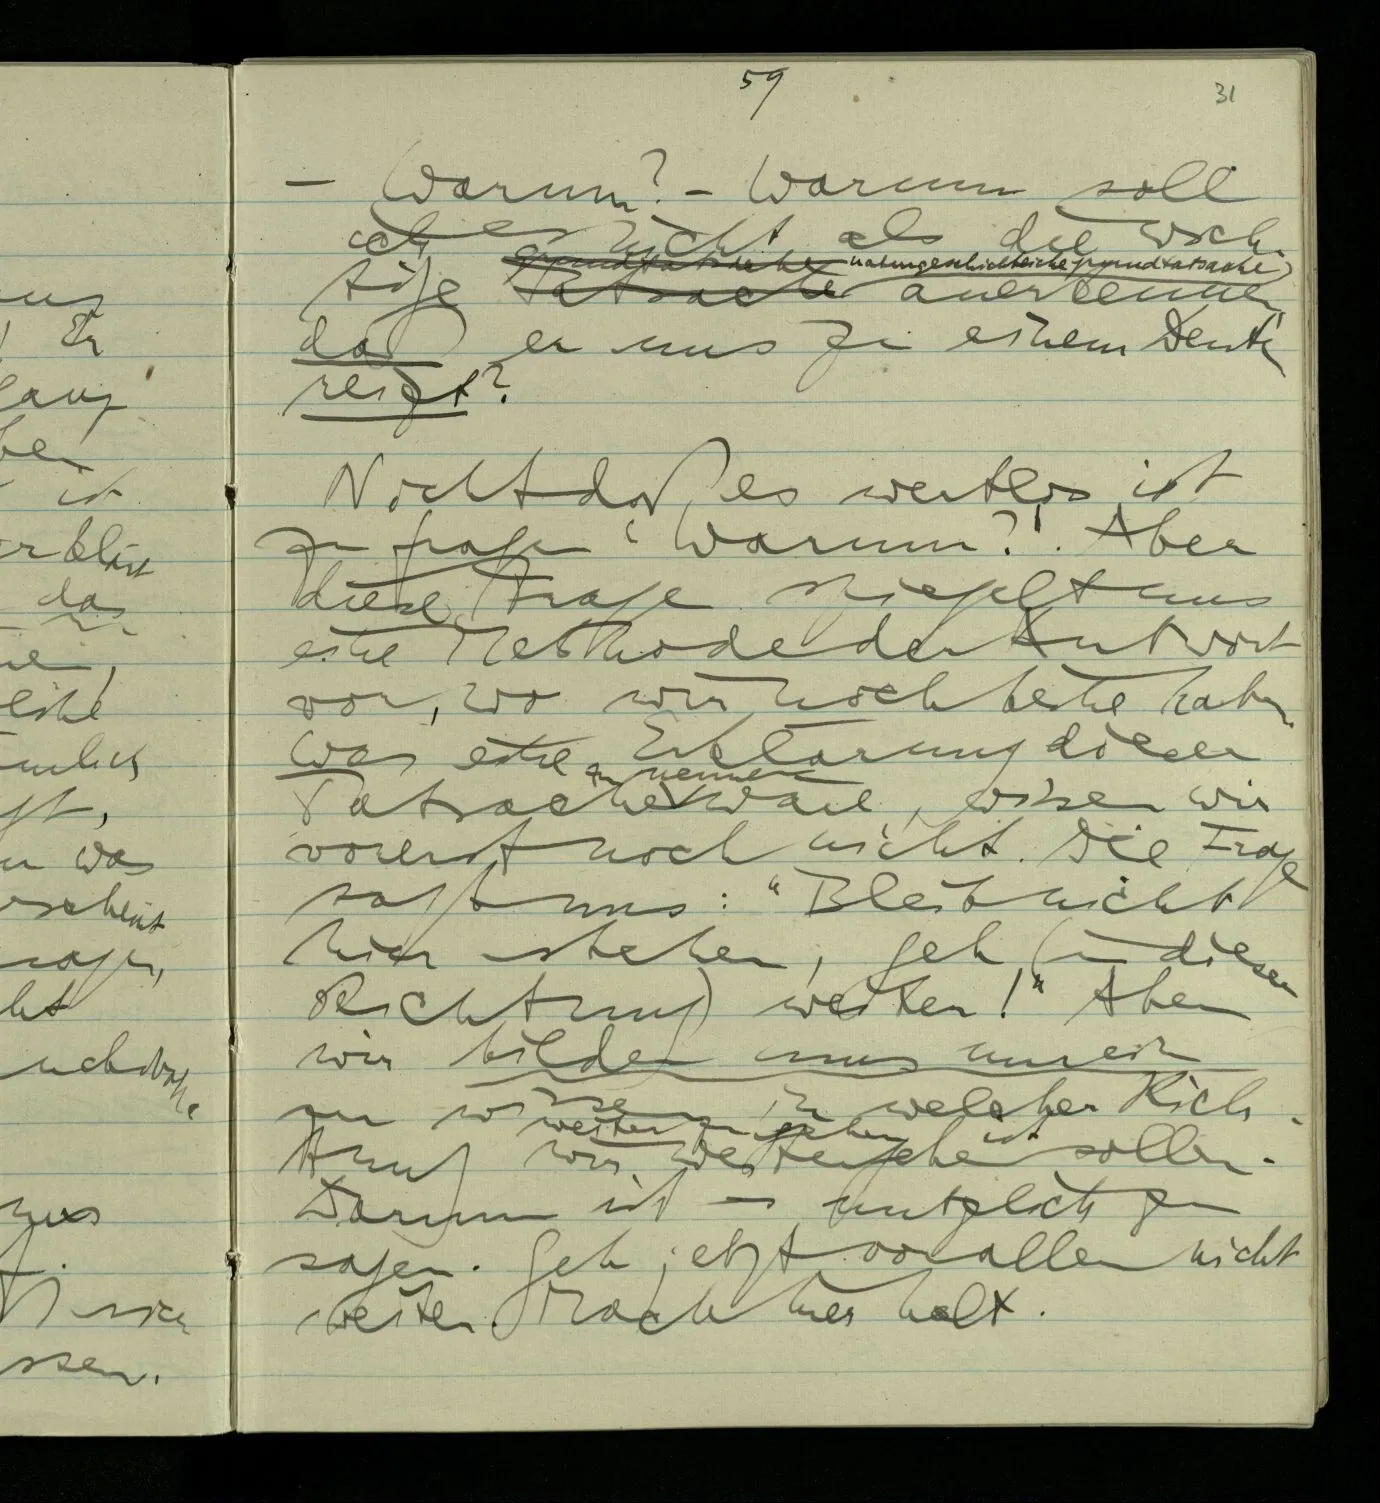 59
31
– Warum? – Warum soll
ich es nicht als die wich-
grundtatsache naturgeschichtliche grundtatsache
tige Tatsache anerkennen,
daß er uns zu einem Denk
reizt?
Nicht daß es wertlos ist
zu fragen ‘Warum?’. Aber
diese Frage spiegelt uns
eine Methode der Antwort
vor, wo wir noch keine haben.
Was eine Erklärung dieser
zu nennen
Tatsache wäre, wissen wir
vorerst noch nicht. Die Frage
sagt uns: “Bleib nicht
hier stehen, geh (in dieser
Richtung) weiter!” Aber
wir bilden uns nur ein
zu wissen in welcher Rich-
weiter zu gehen ist
tung wir weitergehen sollen.
Darum ist es nützlich zu
sagen. Geh jetzt vor allem nicht
weiter. Mach hier halt.
ist
das
was